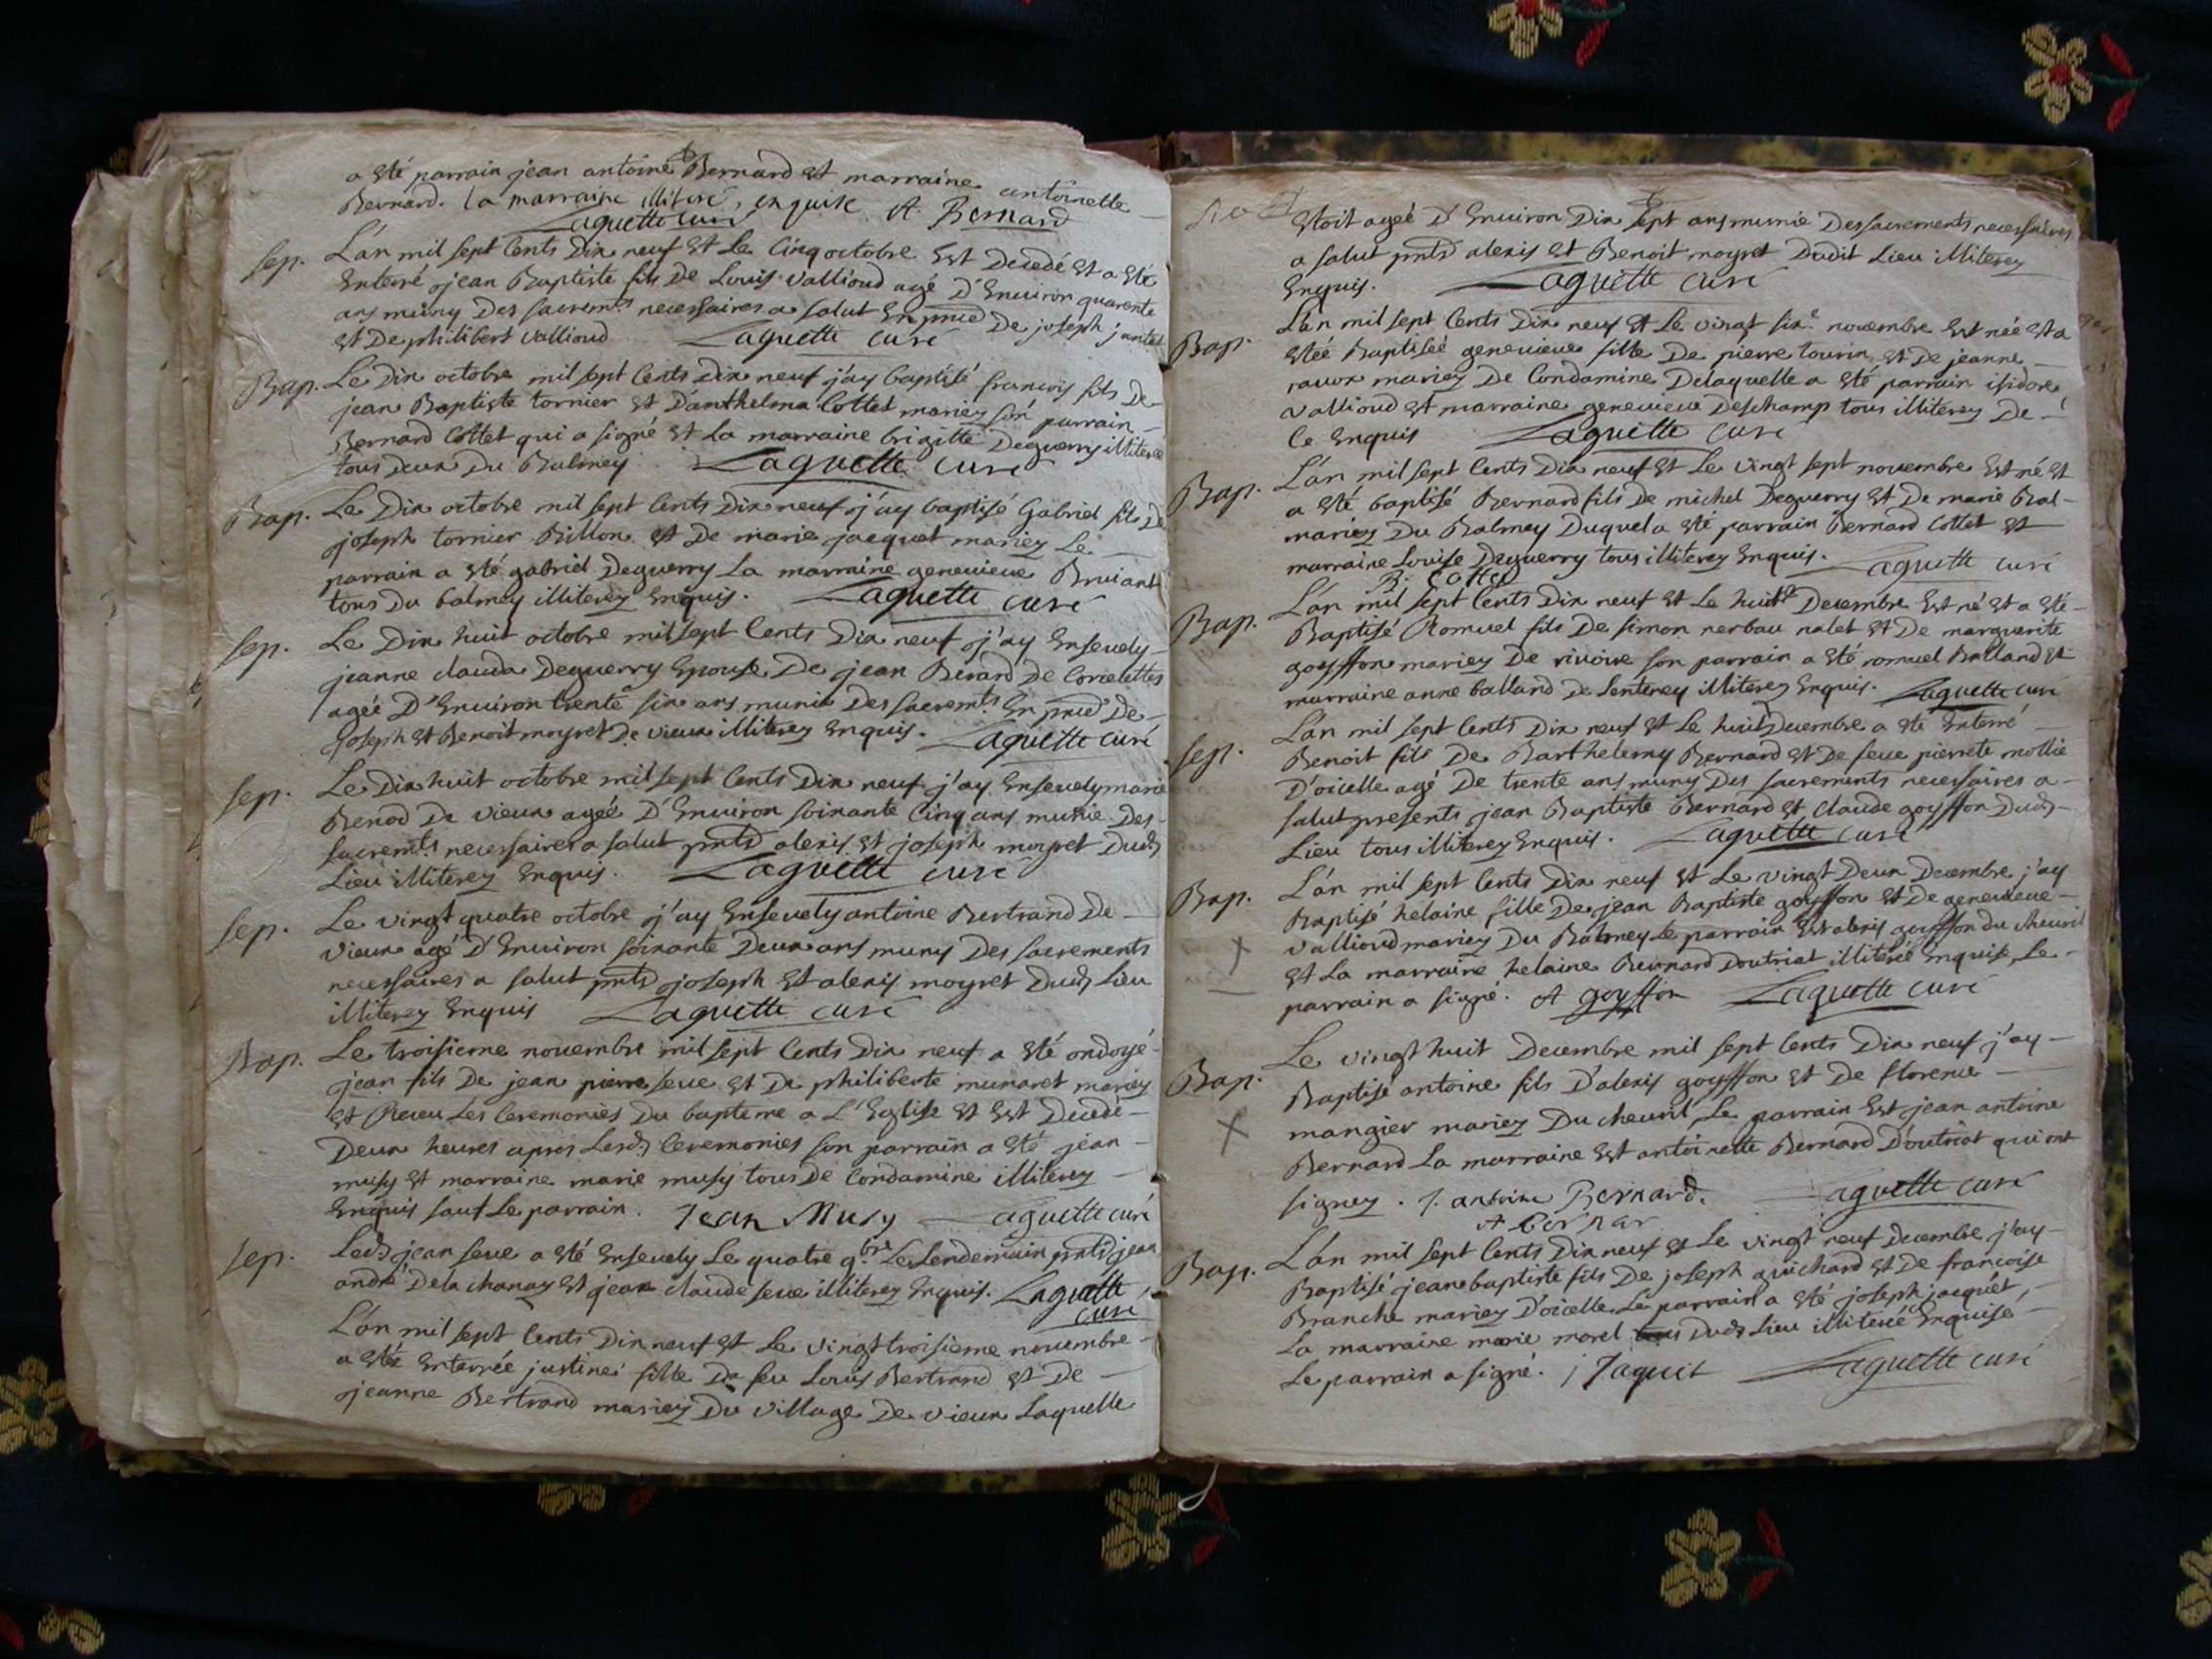 a esté parrain jean antoine Bernard et marraine antoinette
Bernard. la marraine illiteré, enquise A. Bernard
Laguette curé
sep. L'an mil sept cents dix neuf et le cinq octobre est decedé et a esté
enterré jean Baptiste fils de Louis vallioud agé d'environ quarente
ans muny des sacrem.ts necessaires a salut en pnce de joseph jantet
et de philibert vallioud Laguette curé
Bap. Le dix octobre mil sept cents dix neuf j'ay baptisé francois fils de
jean Baptiste tornier et d'anthelma Cottet mariez son parrain
Bernard Cottet qui a signé et la marraine brigitte deguerry illiterée
tous deux du Balmey Laguette curé
Bap. Le dix octobre mil sept cents dix neuf j'ay baptisé Gabriel fils de
joseph tornier Billon et de marie jacquet mariez le
parrain a esté gabriel deguerry la marraine genevieve Bruiant
tous du balmey illiterez enquis. Laguette curé
sep. Le dix huit octobre mil sept cents dix neuf j'ay ensevely
jeanne clauda deguerry epouse de jean Berard de corcelettes
agée d'environ trente six ans munie des sacrem.ts en pnce de
joseph et Benoit moyret de vieux illiterez enquis. Laguette curé
sep. Le dix huit octobre mil sept cents dix neuf j'ay ensevely marie
Benod de vieux agée d'environ soixante cinq ans munie des
sacrem.ts necessaires a salut pnts alexis et joseph moyret dud
Lieu illiterez enquis. Laguette curé
sep. Le vingt quatre octobre j'ay ensevely antoine Bertrand de
vieux agé d'environ soixante deux ans muny des sacrements
necessaires a salut pnts joseph et alexis moyret dud Lieu
illiterez enquis Laguette curé
Bap. Le troisieme novembre mil sept cents dix neuf a esté ondoyé
jean fils de jean pierre seve et de philiberte munaret mariez
et Receu les ceremonies du bapteme a L'eglise et est decedé
deux heures apres lesd ceremonies son parrain a esté jean
musy et marraine marie musy tous de Condamine illiterez
enquis sauf le parrain. Jean Musy Laguette curé
sep. Led jean seve a esté ensevely le quatre 9.bre le lendemain pnts jean
andré dela chanay et jean claude seve illiterez enquis. Laguette
curé
L'an mil sept cents dix neuf et le vingt troisieme novembre
a estée enterrée justine fille de feu Louis Bertrand et de
jeanne Bertrand mariez du village de vieux Laquelle
estoit agée d'environ dix sept ans munie des sacrements necessaires
a salut pnts alexis et Benoit moyret dudit Lieu illiterez
enquis. Laguette curé
Bap. L'an mil sept cents dix neuf et le vingt six.e novembre est née et a
estée Baptisée genevieve fille de pierre tourin et de jeanne
ravox mariez de Condamine delaquelle a esté parrain isidore
vallioud et marraine genevieve deschamp tous illiterez de
ce enquis Laguette curé
Bap. L'an mil sept cents dix neuf et le vingt sept novembre est né et
a esté baptisé Bernard fils de michel deguerry et de marie Bal
mariez du Balmey duquel a esté parrain Bernard Cottet et
marraine Louise deguerry tous illiterez enquis. Laguette curé
B. Cottet
Bap. L'an mil sept cents dix neuf et le huit decembre est né et a esté
Baptisé Romuel fils de simon nerbau nalet et de marguerite
goyffon mariez de rivoire son parrain a esté romuel Balland et
marraine anne balland de senterey illiterez enquis. Laguette curé
sep. L'an mil sept cents dix neuf et le huit decembre a esté enterré
Benoit fils de Barthelemy Bernard et de feue pierrete mollie
d'oicelle agé de trente ans muny des sacrements necessaires a
salut presents jean Baptiste Bernard et claude goyffon dud
Lieu tous illiterez enquis. Laguette curé
Bap. L'an mil sept cents dix neuf et le vingt deux decembre j'ay
Baptisé helaine fille de jean Baptiste goyffon et de genevieve
vallioud mariez du Balmey le parrain est alexis goyffon du chevril
et la marraine helaine Bernard doutriat illiterée enquise, le
parrain a signé. A goyffon Laguette curé
Bap. Le vingt huit decembre mil sept cents dix neuf j'ay
Baptisé antoine fils d'alexis goyffon et de florence
mangier mariez du chevril, le parrain est jean antoine
Bernard la marraine est antoinette Bernard d'outriat qui ont
signez. J. antoine Bernard. Laguette curé
A bernar
Bap. L'an mil sept cents dix neuf et le vingt neuf decembre j'ay
Baptisé jean baptiste fils de joseph guichard et de francoise
Branche mariez d'oicelle, le parrain a esté joseph jacquet,
la marraine marie morel dud Lieu illiterée enquise
le parrain a signé. j Jaquet Laguette curé